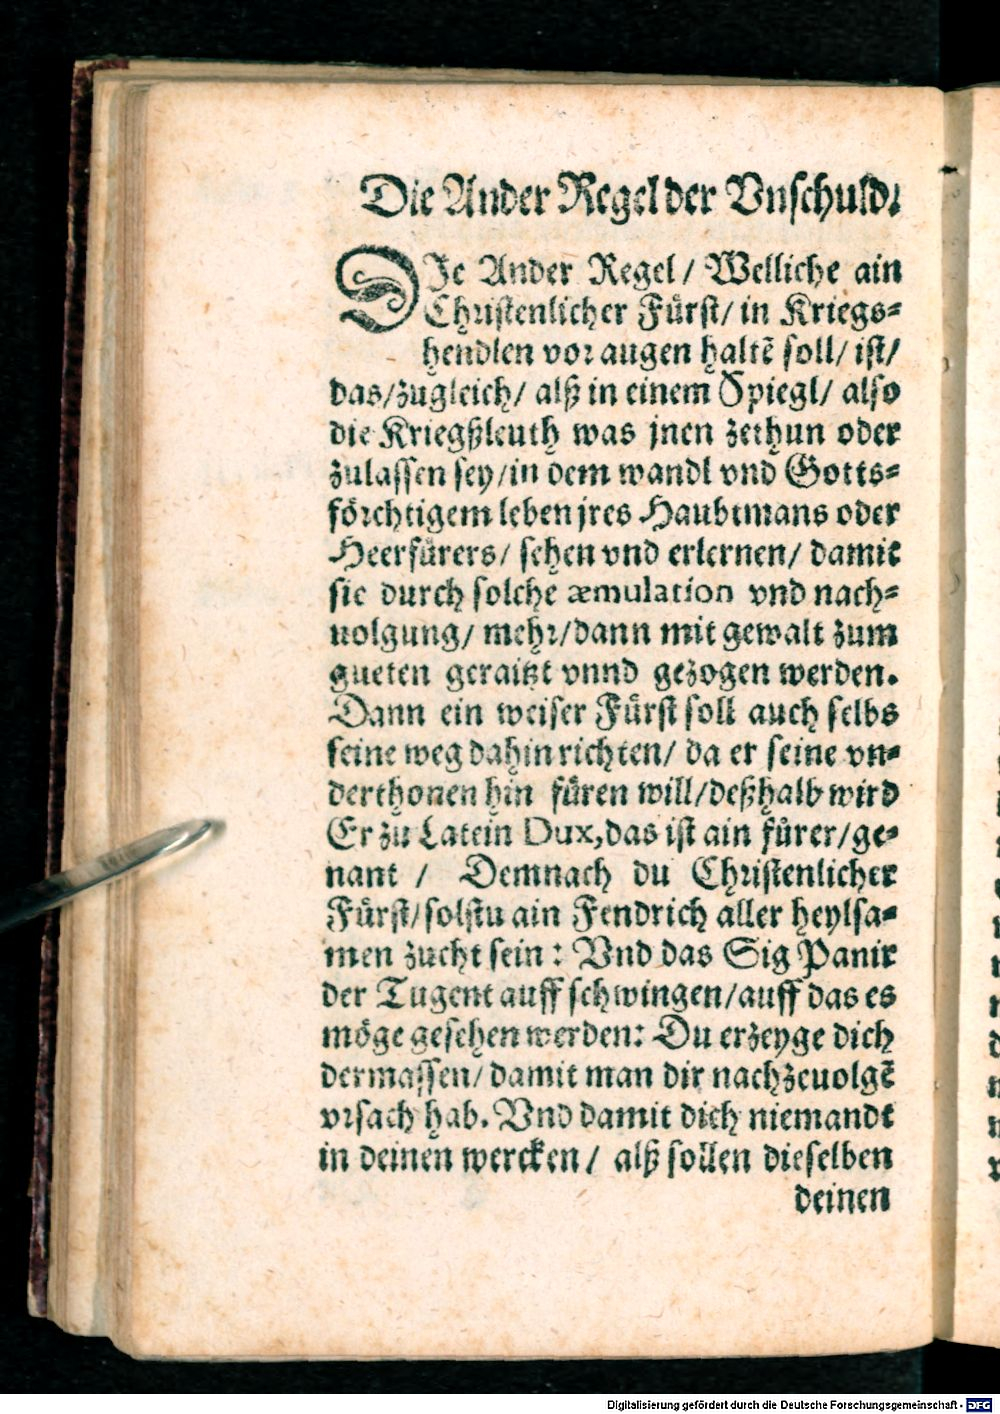 Die Ander Regel der Vnschuld.
DJe Ander Regel/ Welliche ain
Christenlicher Fürst/ in Kriegs-
hendlen vor augen haltẽ soll/ ist/
das/zugleich/ alß in einem Spiegl/ also
die Kriegßleuth was jnen zethun oder
zulassen sey/in dem wandl vnd Gotts-
förchtigem leben jres Haubtmans oder
Heerfürers/ sehen vnd erlernen/ damit
sie durch solche æmulation vnd nach-
uolgung/ mehr/dann mit gewalt zum
gueten geraitzt vnnd gezogen werden.
Dann ein weiser Fürst soll auch selbs
seine weg dahin richten/ da er seine vn-
derthonen hin füren will/deßhalb wird
Er zu Latein Dux,das ist ain fürer/ge-
nant / Demnach du Christenlicher
Fürst/solstu ain Fendrich aller heylsa-
men zucht sein : Vnd das Sig Panir
der Tugent auff schwingen/auff das es
möge gesehen werden: Du erzeyge dich
dermassen/ damit man dir nachzeuolgẽ
vrsach hab. Vnd damit dich niemandt
in deinen wercken / alß sollen dieselben
deinen
Digitalisierung gefördert durch die Deutsche Forschungsgemeinschaft - DFG